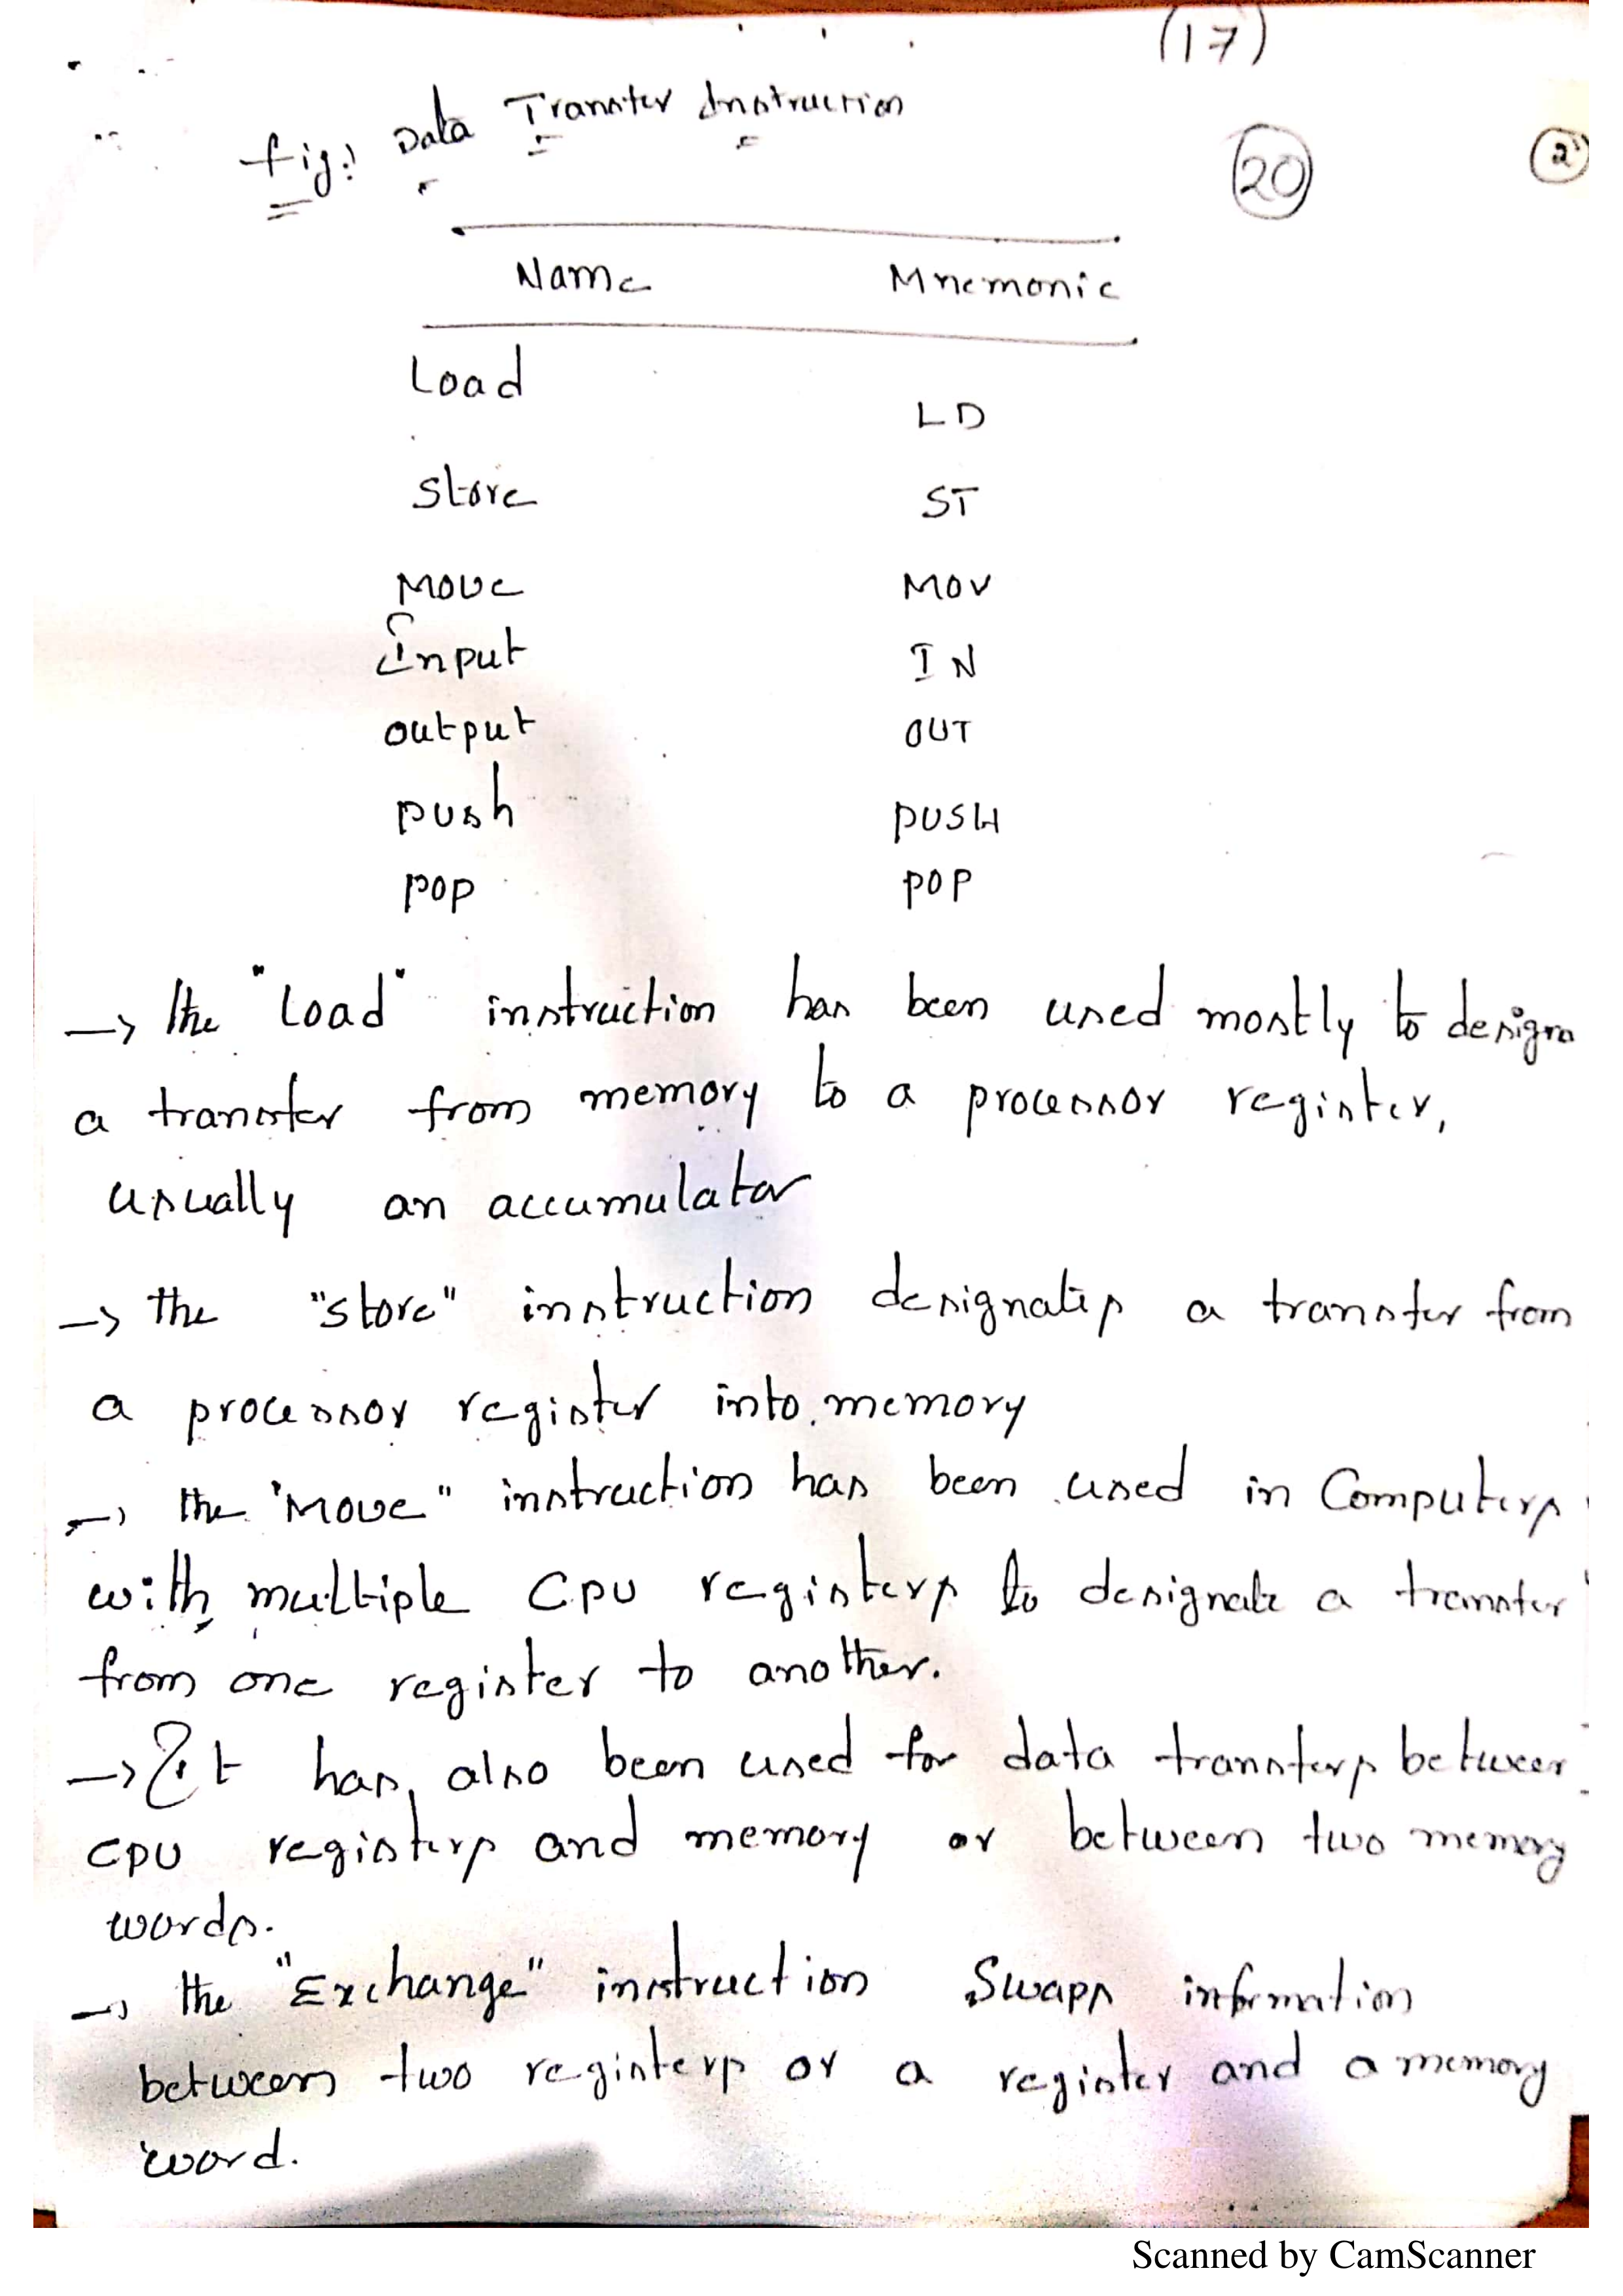 (17)
fig: Data Transfer Instruction
20
2
Name Mnemonic
Load LD
Store ST
Move MOV
Input IN
output OUT
push PUSH
POP POP
→ the "Load" instruction has been used mostly to design
a transfer from memory to a processor register,
usually an accumulator
→ the "store" instruction designates a transfer from
a processor register into memory
→ the "Move" instruction has been used in Computers
with multiple CPU registers to designate a transfer
from one register to another.
→ It has also been used for data transfers between
CPU registers and memory or between two memory
words.
→ the "Exchange" instruction Swaps information
between two registers or a register and a memory
word.
Scanned by CamScanner